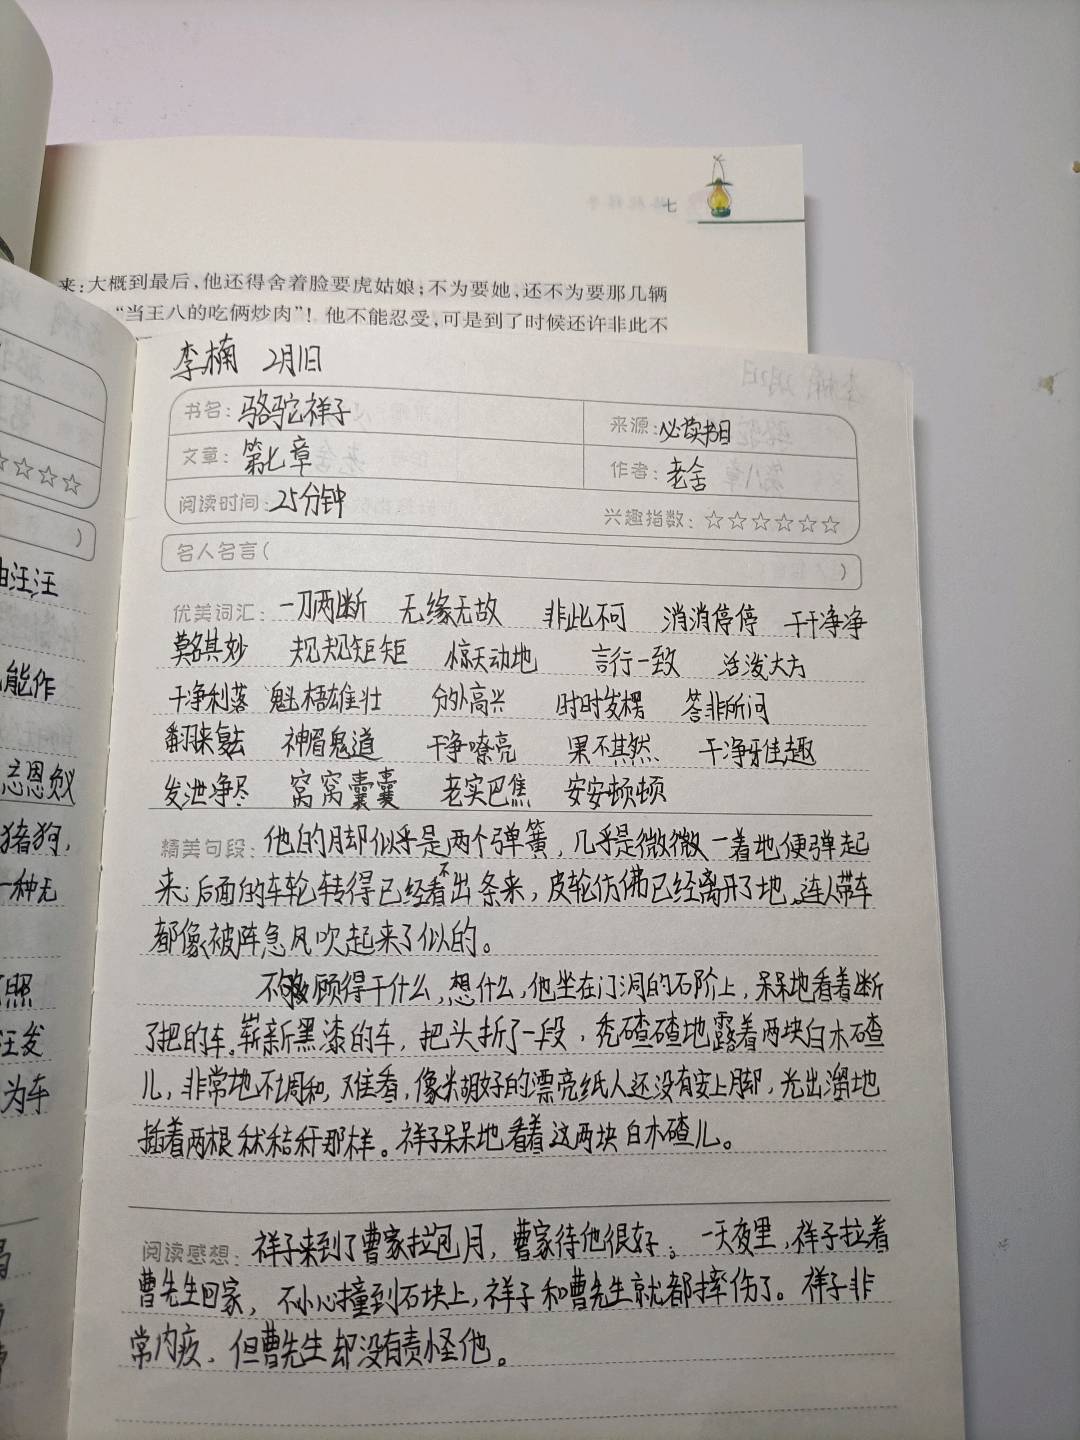 七
来：大概到最后，他还得舍着脸要虎姑娘；不为要她，还不为要那几辆
“当王八的吃俩炒肉”！他不能忍受，可是到了时候还许非此不
李楠 2月1日
书名：骆驼祥子 来源：必读书目
文章：第七章 作者：老舍
阅读时间：25分钟 兴趣指数：☆☆☆☆☆☆
名人名言（ ）
优美词汇：一刀两断 无缘无故 非此不可 消消停停 干干净净
莫名其妙 规规矩矩 惊天动地 言行一致 活泼大方
干净利落 魁梧雄壮 分外高兴 时时发楞 答非所问
翻来复去 神眉鬼道 干净嘹亮 果不其然 干净雅趣
发泄净尽 窝窝囊囊 老实巴焦 安安顿顿
精美句段：他的脚似乎是两个弹簧，几乎是微微一着地便弹起
来；后面的车轮转得已经看不出条来，皮轮仿佛已经离开了地，连人带车
都像被阵急风吹起来了似的。
不够顾得干什么，想什么，他坐在门洞的石阶上，呆呆地看着断
了把的车。崭新黑漆的车，把头折了一段，秃碴碴地露着两块白木碴
儿，非常地不调和，难看，像米糊好的漂亮纸人还没有安上脚，光出溜地
插着两根秫秸秆那样。祥子呆呆地看着这两块白木碴儿。
阅读感想：祥子来到了曹家拉包月，曹家待他很好。一天夜里，祥子拉着
曹先生回家，不小心撞到石块上，祥子和曹先生就都摔伤了。祥子非
常内疚，但曹先生却没有责怪他。
由汪汪
能作
忘恩负义
猪狗，
一种无
照
汪发
为车